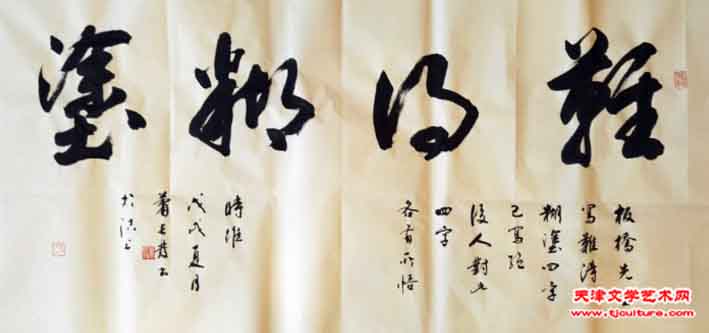 難得糊塗
板橋先生
寫難得
糊塗四字
已寫絕
後人對此
四字
各有所悟
時維
戊戌夏月
於津上
天津文学艺术网
www.tjculture.com